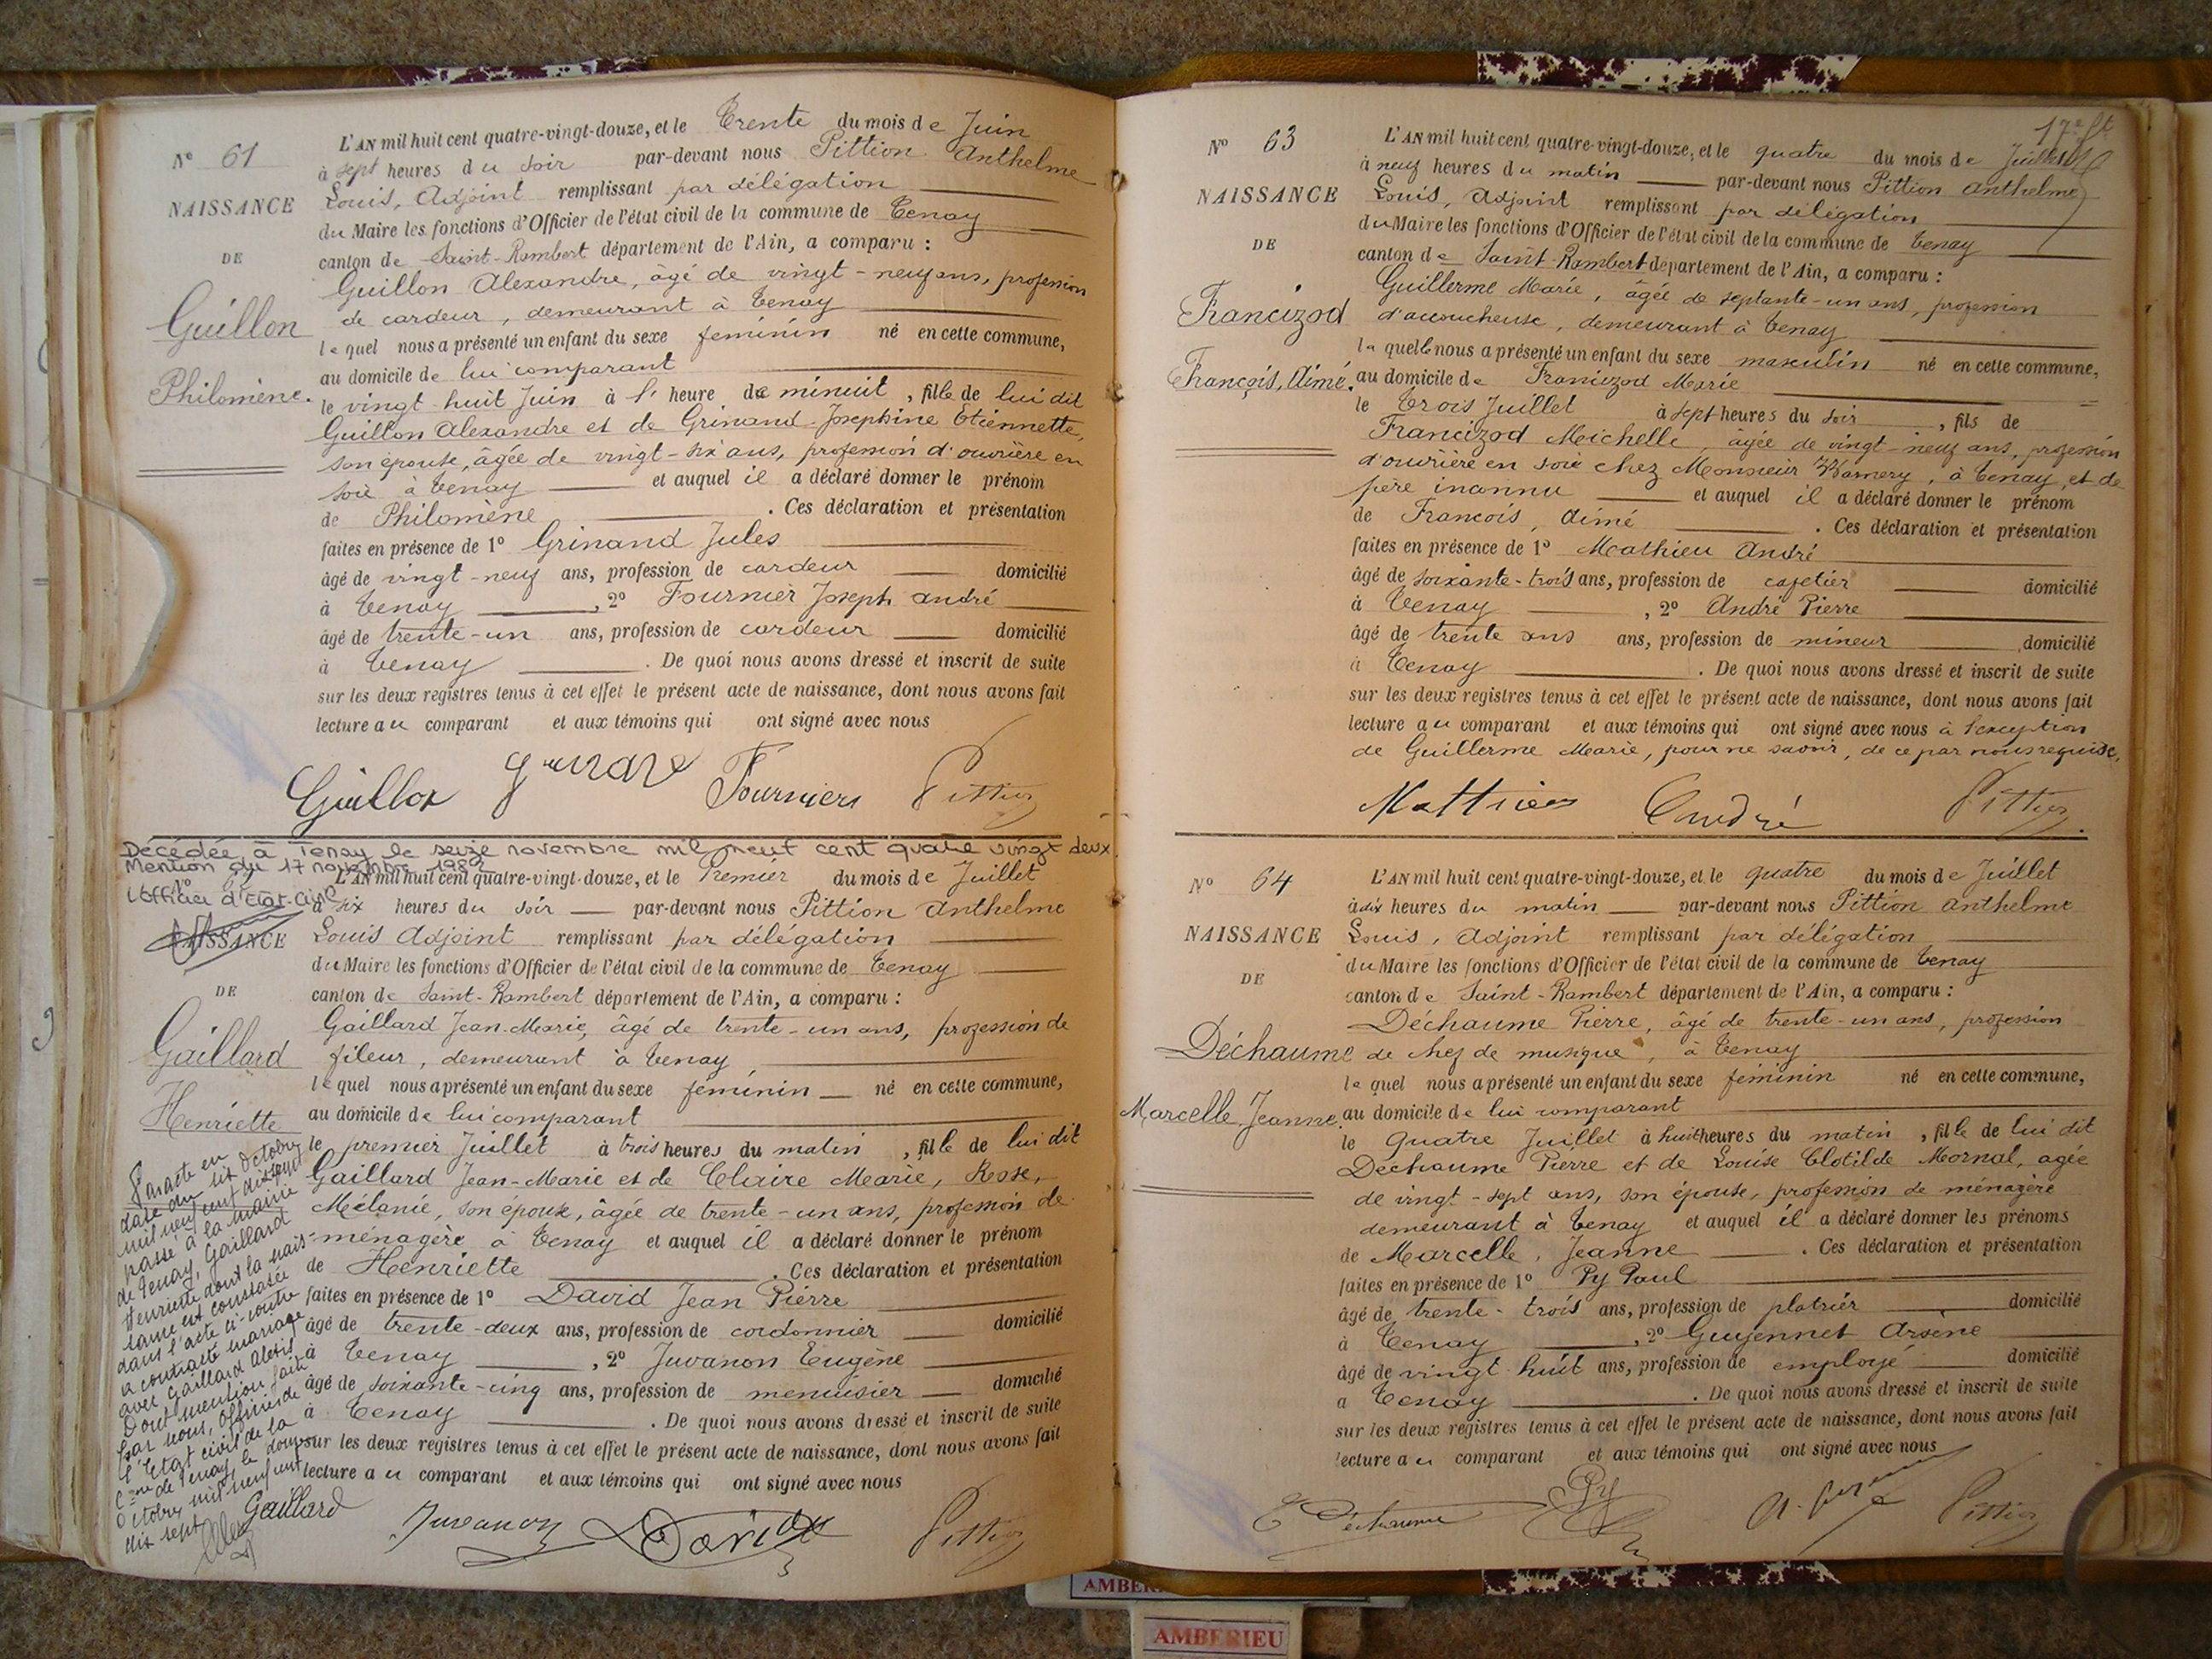 L'AN mil huit cent quatre-vingt-douze, et le Trente du mois de Juin
N° 61
à sept heures du soir par-devant nous Pittion Anthelme
Louis, Adjoint remplissant par délégation
NAISSANCE
du Maire les fonctions d'Officier de l'état civil de la commune de Tenay
DE
canton de Saint-Rambert département de l'Ain, a comparu :
Guillon Alexandre, âgé de vingt-neuf ans, profession
de cardeur, demeurant à Tenay
Guillon
lequel nous a présenté un enfant du sexe feminin né en cette commune,
au domicile de lui comparant
Philomène.
le vingt huit Juin à l' heure de minuit, fille de lui dit
Guillon Alexandre et de Grinand Josephine Etiennette,
son épouse, âgée de vingt-six ans, profession d'ouvrière en
soie à Tenay et auquel il a déclaré donner le prénom
de Philomène. Ces déclaration et présentation
faites en présence de 1° Grinand Jules
âgé de vingt-neuf ans, profession de cardeur domicilié
à Tenay, 2° Fournier Joseph André
âgé de trente-un ans, profession de cardeur domicilié
à Tenay. De quoi nous avons dressé et inscrit de suite
sur les deux registres tenus à cet effet le présent acte de naissance, dont nous avons fait
lecture au comparant et aux témoins qui ont signé avec nous
Guillon Fournier Pittion
Décédée à Tenay le seize novembre mil neuf cent quatre vingt deux.
Mention du 17 novembre 1982
L'officier d'Etat-Civil
L'AN mil huit cent quatre-vingt-douze, et le Premier du mois de Juillet
à six heures du soir par-devant nous Pittion Anthelme
NAISSANCE
Louis Adjoint remplissant par délégation
du Maire les fonctions d'Officier de l'état civil de la commune de Tenay
DE
canton de Saint-Rambert département de l'Ain, a comparu :
Gaillard Jean-Marie, âgé de trente-un ans, profession de
Gaillard
fileur, demeurant à Tenay
lequel nous a présenté un enfant du sexe féminin né en cette commune,
Henriette
au domicile de lui comparant
le premier Juillet à trois heures du matin, fille de lui dit
Gaillard Jean-Marie et de Claire Marie, Rose,
Mélanie, son épouse, âgée de trente-un ans, profession de
ménagère à Tenay et auquel il a déclaré donner le prénom
de Henriette. Ces déclaration et présentation
faites en présence de 1° David Jean Pierre
âgé de trente-deux ans, profession de cordonnier domicilié
à Tenay, 2° Juvanon Eugène
âgé de soixante-cinq ans, profession de menuisier domicilié
à Tenay. De quoi nous avons dressé et inscrit de suite
sur les deux registres tenus à cet effet le présent acte de naissance, dont nous avons fait
lecture au comparant et aux témoins qui ont signé avec nous
Par acte en
date du dit octobre
mil neuf cent dix sept
passé à la mairie
de Tenay, Gaillard
Henriette dont la nais-
sance est constatée
dans l'acte ci-contre
a contracté mariage
avec Gaillard Alexis
Dont mention faite
par nous, Officier de
l'Etat civil de la
Cne de Tenay, le douze
Octobre mil neuf cent
dix sept
Gaillard Juvanon David Pittion
17e ft
N° 63
L'AN mil huit cent quatre-vingt-douze, et le quatre du mois de Juillet
à neuf heures du matin par-devant nous Pittion Anthelme
NAISSANCE
Louis, Adjoint remplissant par délégation
du Maire les fonctions d'Officier de l'état civil de la commune de Tenay
DE
canton de Saint-Rambert département de l'Ain, a comparu :
Guillerme Marie, âgée de septante-un ans, profession
Francizod
d'accoucheuse, demeurant à Tenay
laquelle nous a présenté un enfant du sexe masculin né en cette commune,
François, Aimé.
au domicile de Francizod Marie
le Trois Juillet à sept heures du soir, fils de
Francizod Michelle âgée de vingt-neuf ans, profession
d'ouvrière en soie chez Monsieur Warnery, à Tenay, et de
père inconnu et auquel il a déclaré donner le prénom
de Francois, Aimé. Ces déclaration et présentation
faites en présence de 1° Mathieu André
âgé de soixante-trois ans, profession de cafetier domicilié
à Tenay, 2° André Pierre
âgé de trente ans ans, profession de mineur domicilié
à Tenay. De quoi nous avons dressé et inscrit de suite
sur les deux registres tenus à cet effet le présent acte de naissance, dont nous avons fait
lecture au comparant et aux témoins qui ont signé avec nous à l'exception
de Guillerme Marie, pour ne savoir, de ce par nous requise.
Matthieu André Pittion
N° 64
L'AN mil huit cent quatre-vingt-douze, et le quatre du mois de Juillet
à dix heures du matin par-devant nous Pittion Anthelme
NAISSANCE
Louis, Adjoint remplissant par délégation
du Maire les fonctions d'Officier de l'état civil de la commune de Tenay
DE
canton de Saint-Rambert département de l'Ain, a comparu :
Déchaume Pierre, âgé de trente-un ans, profession
Déchaume
de chef de musique, à Tenay
lequel nous a présenté un enfant du sexe féminin né en cette commune,
Marcelle Jeanne.
au domicile de lui comparant
le Quatre Juillet à huit heures du matin, fille de lui dit
Déchaume Pierre et de Louise Clotilde Mornal, agée
de vingt-sept ans, son épouse, profession de ménagère
demeurant à Tenay et auquel il a déclaré donner les prénoms
de Marcelle, Jeanne. Ces déclaration et présentation
faites en présence de 1° Py Paul
âgé de trente-trois ans, profession de platrier domicilié
à Tenay, 2° Guyennet Arsène
âgé de vingt-huit ans, profession de employé domicilié
à Tenay. De quoi nous avons dressé et inscrit de suite
sur les deux registres tenus à cet effet le présent acte de naissance, dont nous avons fait
lecture au comparant et aux témoins qui ont signé avec nous
Déchaume Py Pittion
AMBERIEU